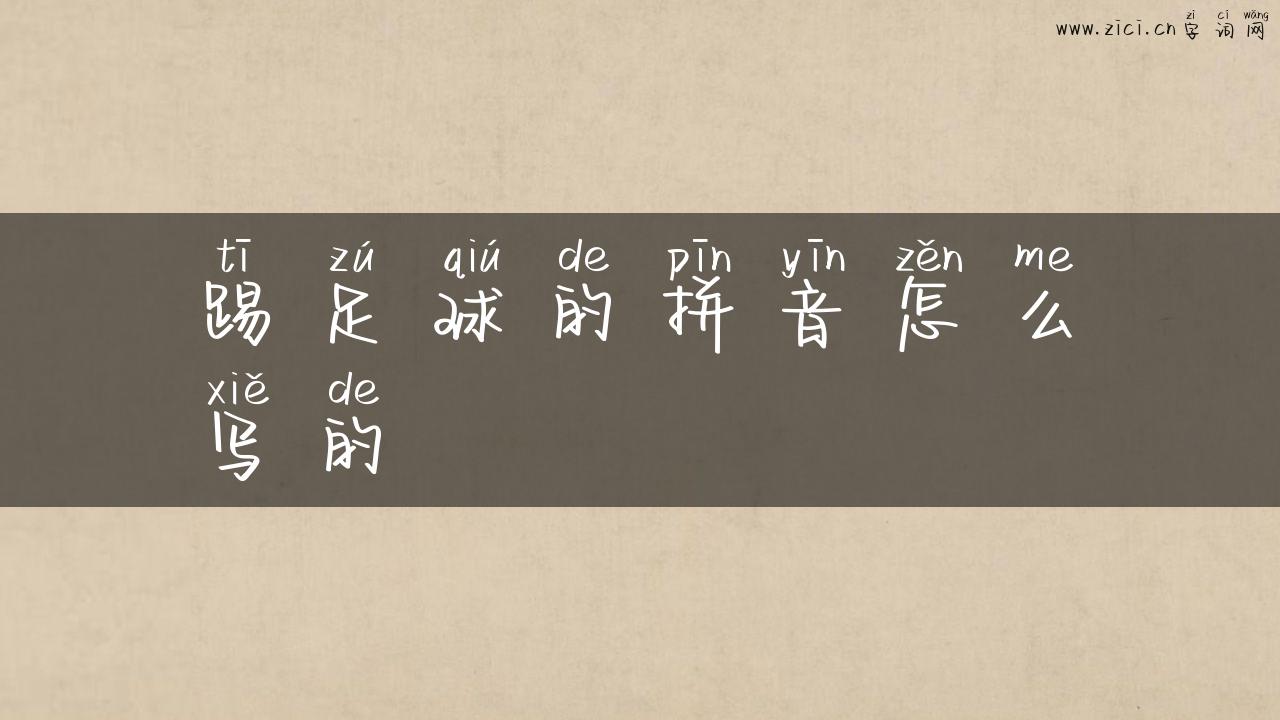 zì cí wǎng
www.zici.cn 字 词 网
tī zú qiú de pīn yīn zěn me
踢 足 球 的 拼 音 怎 么
xiě de
写 的